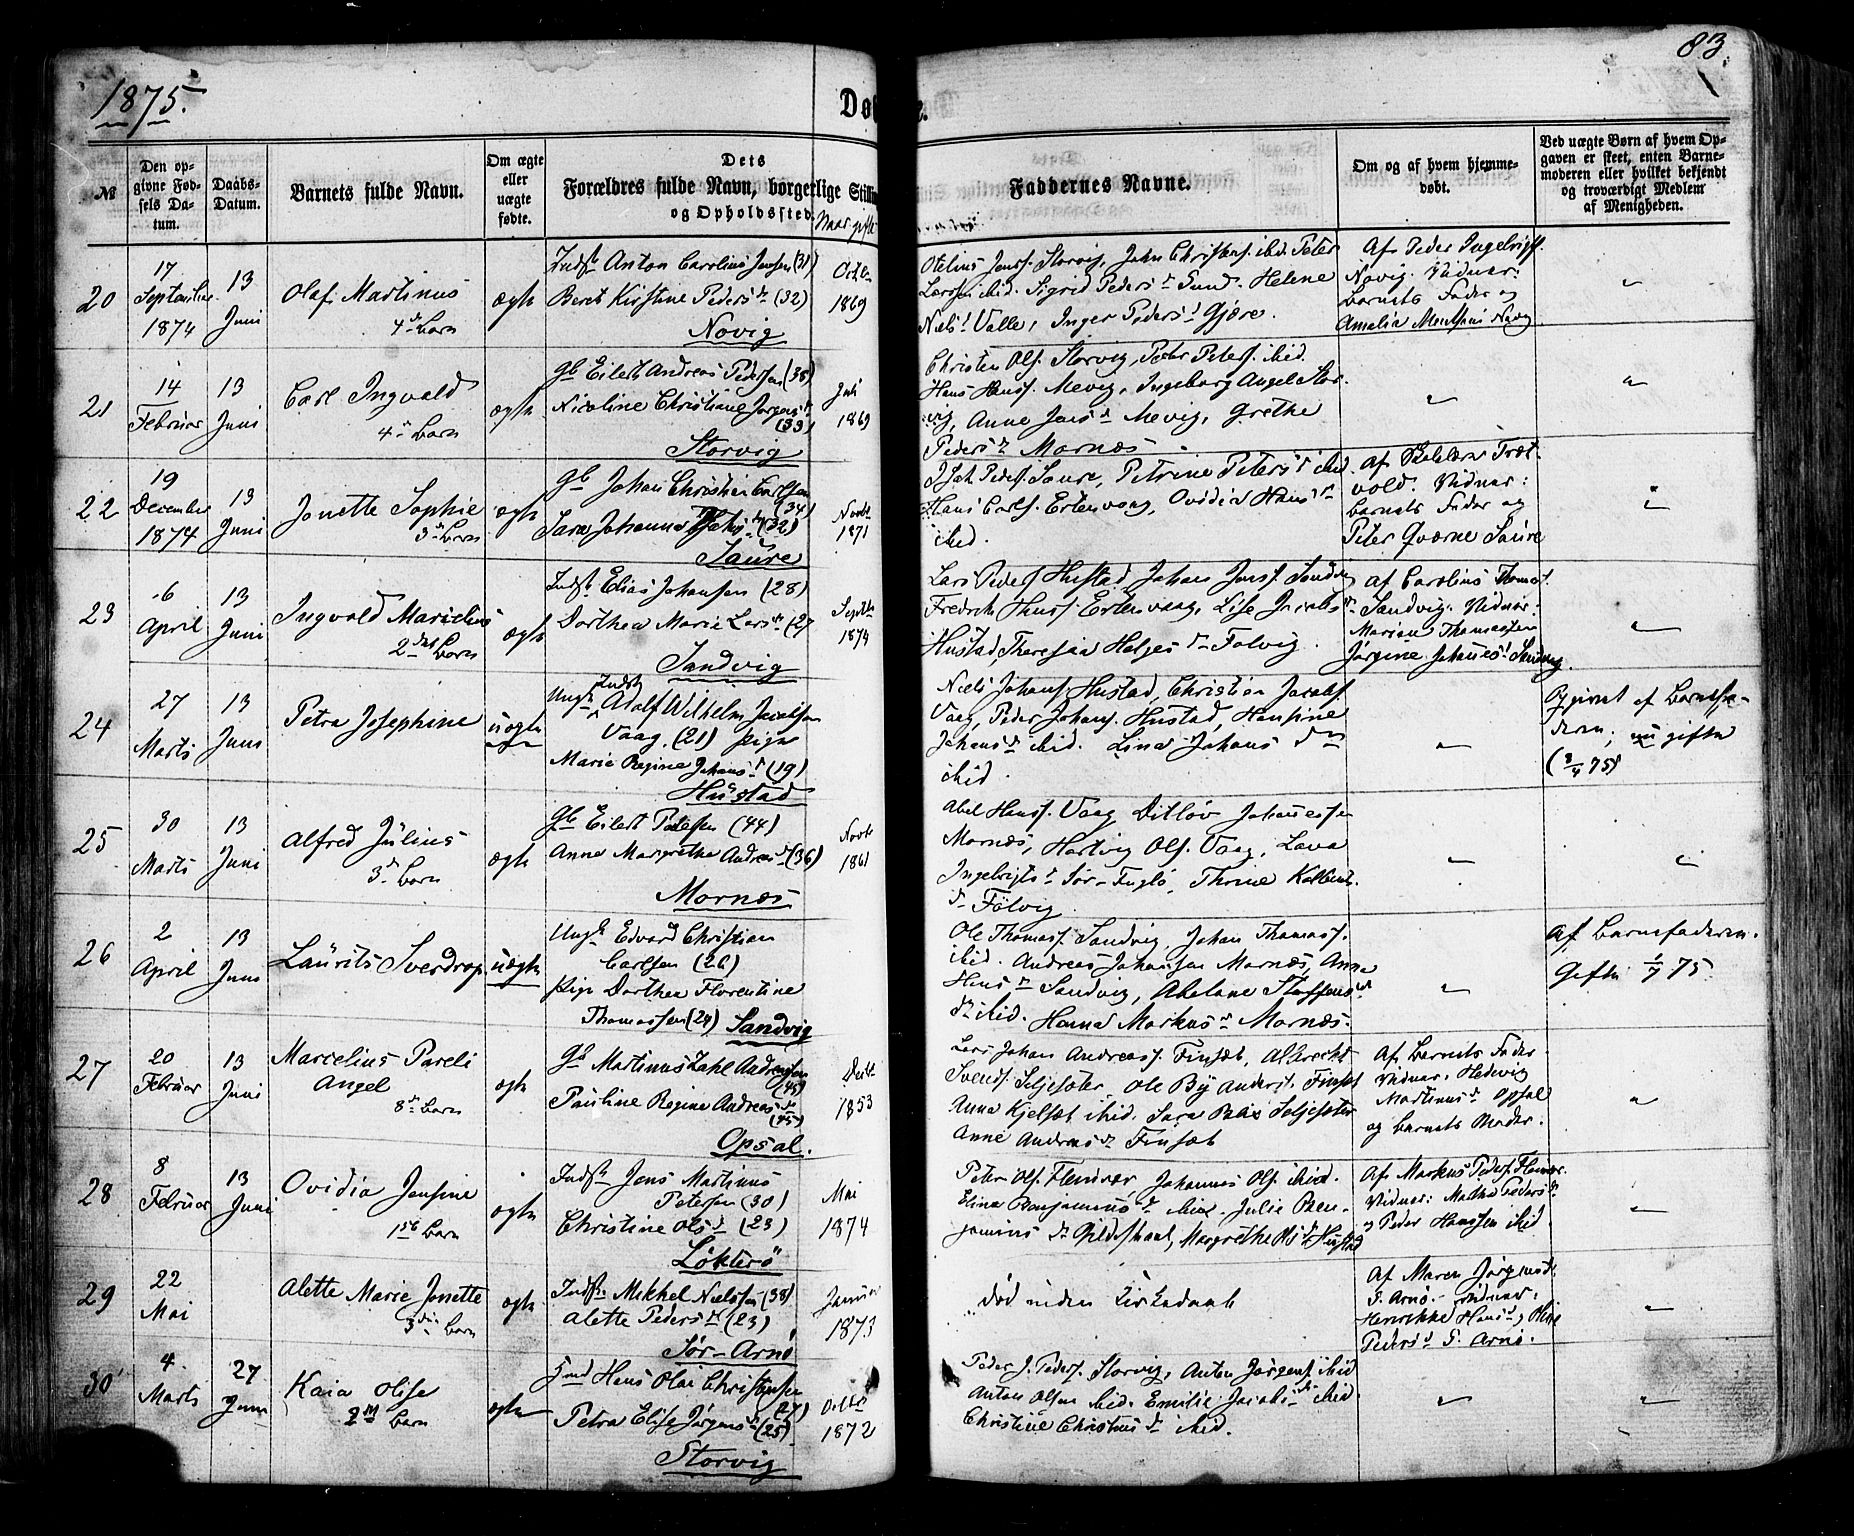 1875.
83.
Daabte.
№
Den opgivne Fødsels Datum.
Daabs-Datum.
Barnets fulde Navn.
Om ægte eller uægte fødte.
Dets Forældres fulde Navn, borgerlige Stilling og Opholdssted.
Naar gifte
Faddernes Navne.
Om og af hvem hjemmedøbt.
Ved uægte Børn af hvem Opgaven er skeet, enten Barnemoderen eller hvilket bekjendt og troværdigt Medlem af Menigheden.
20
17 September 1874
13 Juni
Olaf Martinus
4de Barn
ægte
Indst Anton Carolius Jensen (31)
Beret Kirstine Pedersd (32)
Novig
1869
Otelius Jenss. Storvig, John Christens. ibid. Peter
Larssen ibid. Sigrid Pedersd Sund. Helene
Nielsd Valle, Inger Pedersd Gjøre.
Af Peder Ingebrigts.
Novig. Vidner:
Barnets Fader og
Amalia Novig
21
14 Februar
13 Juni
Carl Ingvald
4de Barn
ægte
Gb Eilert Andreas Pedersen (38)
Nicoline Christiane Jørgensd
(33)
Storvig
Juli
1869
Christen Ols. Storvig, Peter Peters. ibid.
Hans Hanss. Mevig, Ingeborg Angel Stor-
vig, Anne Jensd Mevig, Grethe
Pedersd Mornæs.
22
19 December 1874
13 Juni
Jonette Sophie
3de Barn
ægte
Gb Johan Christian Carlsen
(34)
Sara Johanna (32)
Saure
Novb
1871
Joh. Peders. Saure, Petrine Petersd ibid.
Hans Carls. Ertenvaag, Ovidia Hansd
ibid.
Af
vold. Vidner:
Barnets Fader og
Peter Qværne Saure
23
6 April
13 Juni
Ingvald Marselius
2det Barn
ægte
Indst Elias Johansen (28)
Dorthea Marie Larsd (27
Sandvig
Septbr
1874
Lars Peders. Hustad, Johan Jenss. Sandvig
Fredrik Hanss. Ertenvaag, Lise Jacobsd
Hustad, Theresia Helgesd Folvig.
Af Carolius Thomas.
Sandvig. Vidner:
Marian Thomassen
Jørgine Johannesd Sandvig.
24
27 Marts
13 Juni
Petra Josephine
uægte
Ungk Indst Adolf Wilhelm Jacobsen
Vaag. (21) pige
Marie Regine Johansd (19)
Hustad
Niels Johans. Hustad, Christian Jacobs.
Vaag, Peder Johans. Hustad, Hansine
Johansd ibid. Lina Johans d
ibid.
Opgivet af Barnefa-
deren, nu gifte
(9/4 75)
25
30 Marts
13 Juni
Alfred Julius
3de Barn
ægte
Gb Eilert Petersen (44)
Anne Margrethe Andreasd (36)
Mornæs
Novb
1861
Abel Hanss. Vaag Ditløv Johannessen
Mornæs, Hartvig Ols. Vaag, Lava
Ingebrigtsd Sør-Fuglø, Thrine
d Fölvig
26
2 April
13 Juni
Laurits Sverdrup
uægte
Ungk Edvard Christian
Carlsen (26)
pige Dorthea Florentine
Thomassen (24) Sandvig
Ole Thomass. Sandvig, Johan Thomass.
ibid. Andreas Johansen Mornæs, Anne
Hansd Sandvig, Abelane Steffens
d ibid. Hanna Markusd Mornæs.
Af Barnefaderen.
Gifte 1/7 75.
27
20 Februar
13 Juni
Marcelius Pareli
Angel
8de Barn
ægte
Gb Martinus Zahl Andreassen
(45)
Pauline Regine Andreasd
(45)
Opsal.
1853
Lars Johan Andreass. Finsæt, Albrecht
Svends. Seljesæter, Ole By Anders. Finsæt
Anna Kjelsæt ibid. Sara Seljesæter
Anne Andreasd Finsæt
Af Barnets Fader.
Vidner. Hedevig
Martinusd Opsal
og Barnets Moder.
28
8 Februar
13 Juni
Ovidia Jensine
1ste Barn
ægte
Indst Jens Martinus
Petersen (30)
Christine Olsd (23)
Løkterø
Mai
1874
Peter Ols. Fleinvær Johannes Ols. ibid.
Elina Benjaminsd ibid. Julie Ben-
jamins d Gildeskaal, Margrethe Olsd Hustad
Af Markus Peders. Fleinvær.
Vidner: Mathe Pedersd
og Peder Hanssen ibid.
29
22 Mai
Alette Marie Jonette
3die Barn
ægte
Indst Mikkel Nielssen (38)
Alette Pedersd (23)
Sør-Arnø
Januar
1873
død uden Kirkedaab
Af Maren Jørgensd
S. Arnø. Vidner:
Henrikke Hansd og Oline
Pedersd S. Arnø.
30
4 Marts
27 Juni
Kaia Olise
2det Barn
ægte
Ind Hans Olai Christensen
(27)
Petra Elise Jørgensd (25)
Storvig
Octbr
1872
Peder J. Peders. Storvig, Anton Jørgens. ibid
Anton Olsen ibid. Emilie Jacobsd ibid.
Christine Christensd ibid.